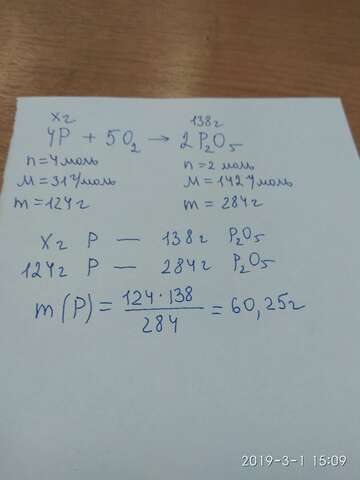 xг 138г
4P + 5O₂ → 2P₂O₅
n=4моль n=2 моль
M=31г/моль M=142г/моль
m=124г m=284г
Xг P — 138г P₂O₅
124г P — 284г P₂O₅
m(P) = 124·138/284 = 60,25г
2019-3-1 15:09